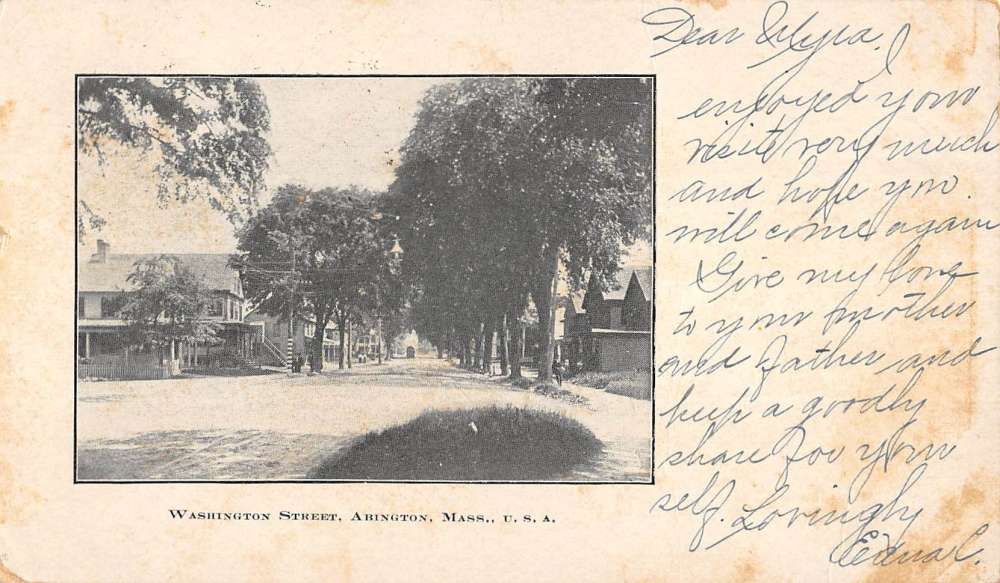 Dear Elyra, I
enjoyed your
visit very much
and hope you
will come again
Give my love
to your mother
and father and
keep a goodly
share for your
self. Lovingly
Edna C.
WASHINGTON STREET, ABINGTON, MASS., U. S. A.